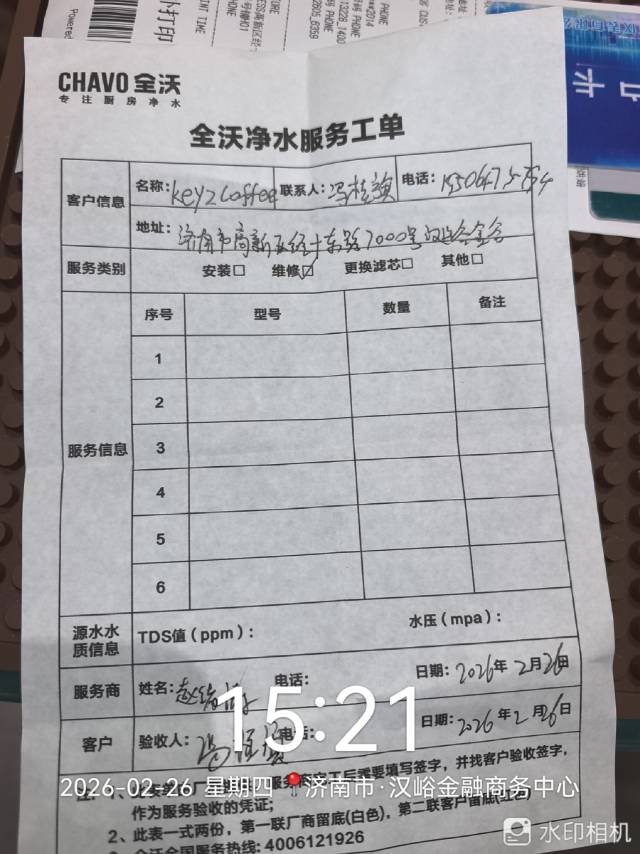 CHAVO 全沃
专注厨房净水
全沃净水服务工单
客户信息
名称: keyz coffee 联系人: 电话:
地址: 济南市高新区经十东路7000号汉峪金谷
服务类别
安装□ 维修☑ 更换滤芯□ 其他□
服务信息
序号 型号 数量 备注
1
2
3
4
5
6
源水水质信息
TDS值(ppm): 水压(mpa):
服务商
姓名: 电话: 日期: 2026年2月26日
客户
验收人: 电话: 日期: 2026年2月26日
15:21
2026-02-26 星期四 济南市·汉峪金融商务中心
后需要填写签字,并找客户验收签字,
作为服务验收的凭证;
2、此表一式两份,第一联厂商留底(白色),第二联客户留底
全沃全国服务热线: 4006121926
水印相机